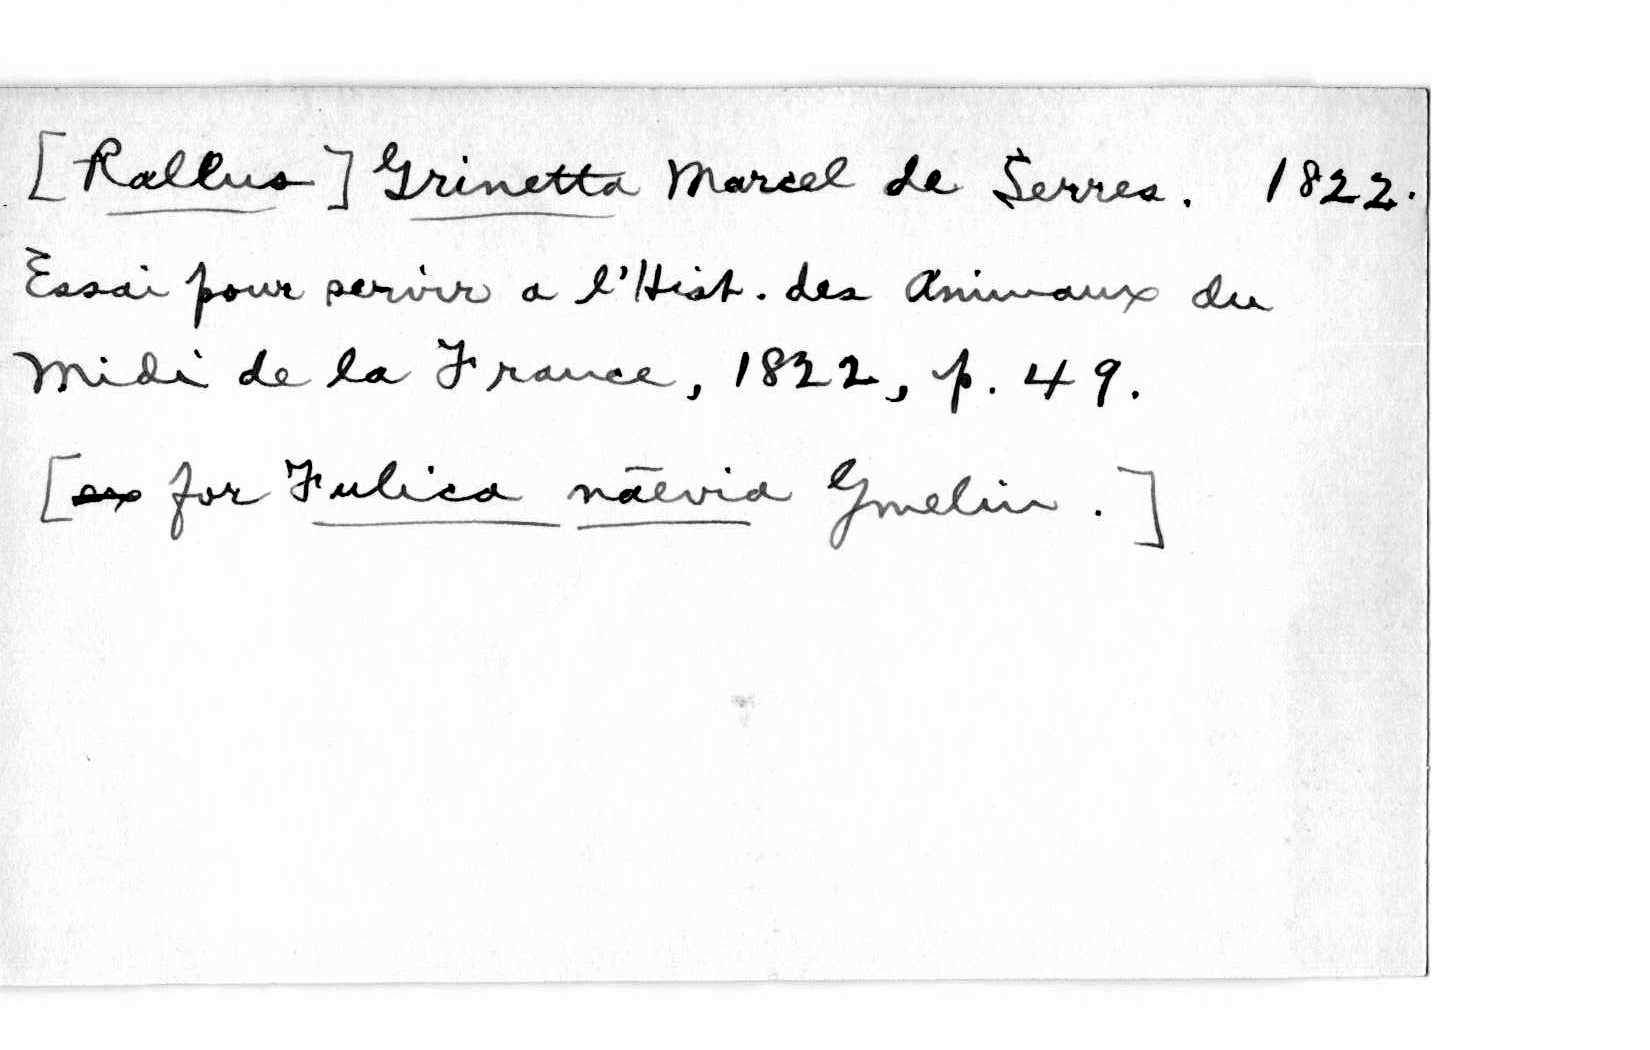 [Rallus] Grinetta Marcel de Serres. 1822.
Essai pour servir a l'Hist. des Animaux du
Midi de la France, 1822, p. 49.
[ex for Fulica nāevia Gmelin.]